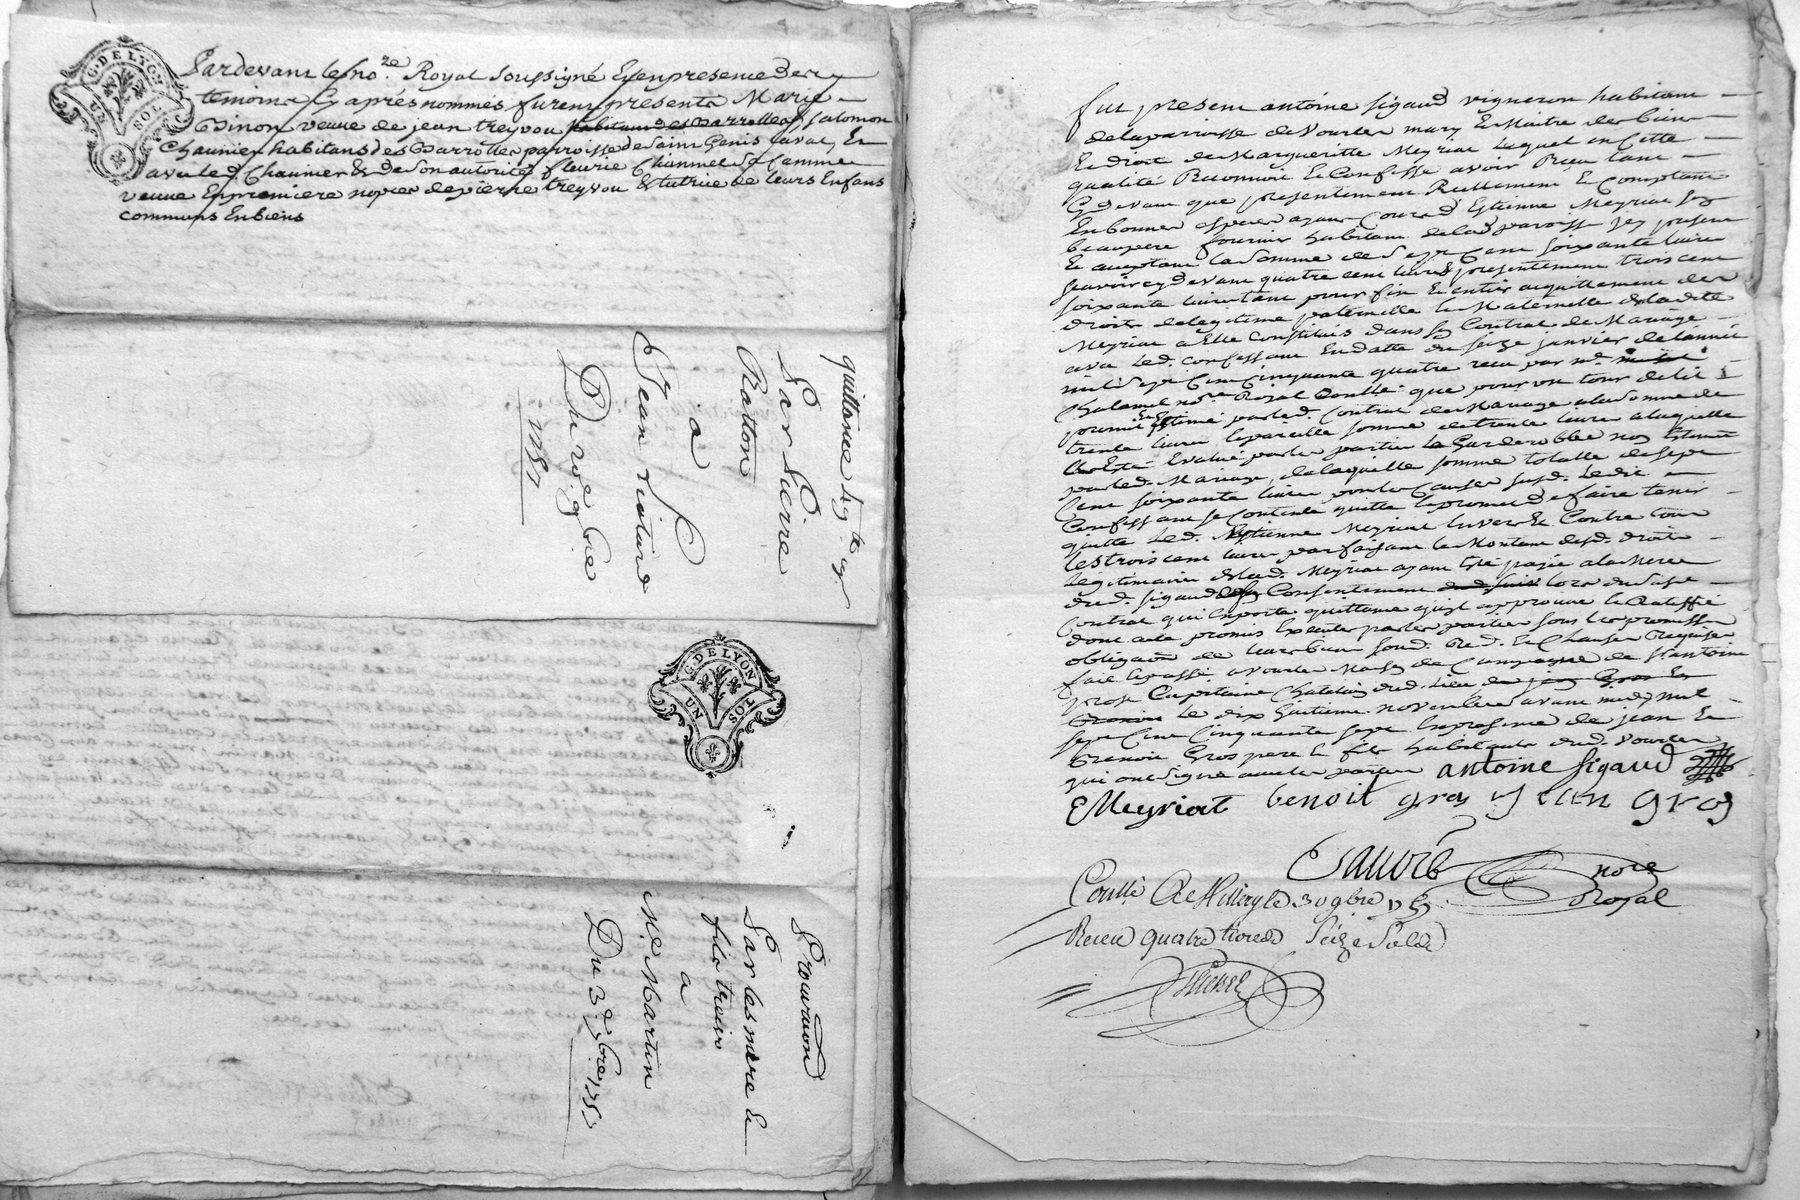 G. DE LYON
UN SOL
Pardevant le no.re Royal soussigné Et en presence des
temoins Cy aprés nommés furent presents Marie
Binon veuve de jean treyvou habitant des Barrolles salomon
Chaunier habitans des Barrolles parroisse de saint Genis Laval, Et
avec led. Chaunier & de son autorité fleurie Chunnel sa femme
veuve En premiere noces de pierre treyvou & tutrice de leurs Enfans
communs En biens
quittance
Par Pierre
Ratton
a
Jean
Du 10 9bre
1757
G. DE LYON
UN SOL
Procuration
Par les mere &
fils treivo
a
Me Martin
Du 3e 7bre 1757
fut present antoine sigaud vigneron habitant
de la parroisse de Vourles mary & Maitre des biens
Et droits de Margueritte Meyriat Lequel en Cette
qualité Reconnoit & Confesse avoir Receu tant
Cy devant que presentement Reellement & Comptant
En bonnes especes ayant Cours d' Estienne Meyriat son
beaupere fournier habitant de lad. parroisse icy present
& acceptant la somme de sept Cent soixante livres
scavoir cy devant quatre cent livres & presentement trois cent
soixante livres tant pour fin & entier acquittement des
droits de legitime paternelle & Maternelle de ladite
Meyriat a Elle Constitués dans son Contrat de Mariage
avec led. confessant En datte du seize janvier de l'année
mil sept Cent Cinquante quatre receu par me.
Chalamel no.re Royal que pour un tour de lit
fournit Estimé par led. Contrat de Mariage a la somme de
trente livres la pareille somme de trente livres a laquelle
a Esté Evalué par les parties la Garderobbe non Estimée
par led. Mariage, de laquelle somme totalle de sept
Cent soixante livres pour les Causes susd. Ledit
Confessant se Contente quitte & promet de faire tenir
quitte Led. Estienne Meyriat Envers & Contre tous
Les trois cent livres parfaisant le Montant desd. droits
Legitimaires de lad. Meyriat ayant Esté payée a la Mere
dud. sigaud de son Consentement lors du susd.
Contrat qui Emporte quittance qu'il approuve & Ratiffie
dont acte promis Executer par les parties sous les promesses
obligaon de leurs biens soum. Red. & Clauses Requises
fait & passé a Vourles Maison de Campagne de sr. antoine
Capitaine Chatelain dud. Lieu
Le dix huitieme novembre avant midy mil
sept Cent Cinquante sept En presence de jean &
Benoit Gros pere & fils habitants dud. Vourles
qui ont signé avec les parties antoine sigaud
E Meyriat benoit gros jean gros
nore
Royal
Collé a St. le 30 9bre 1757
Receu quatre livres Seize Sols